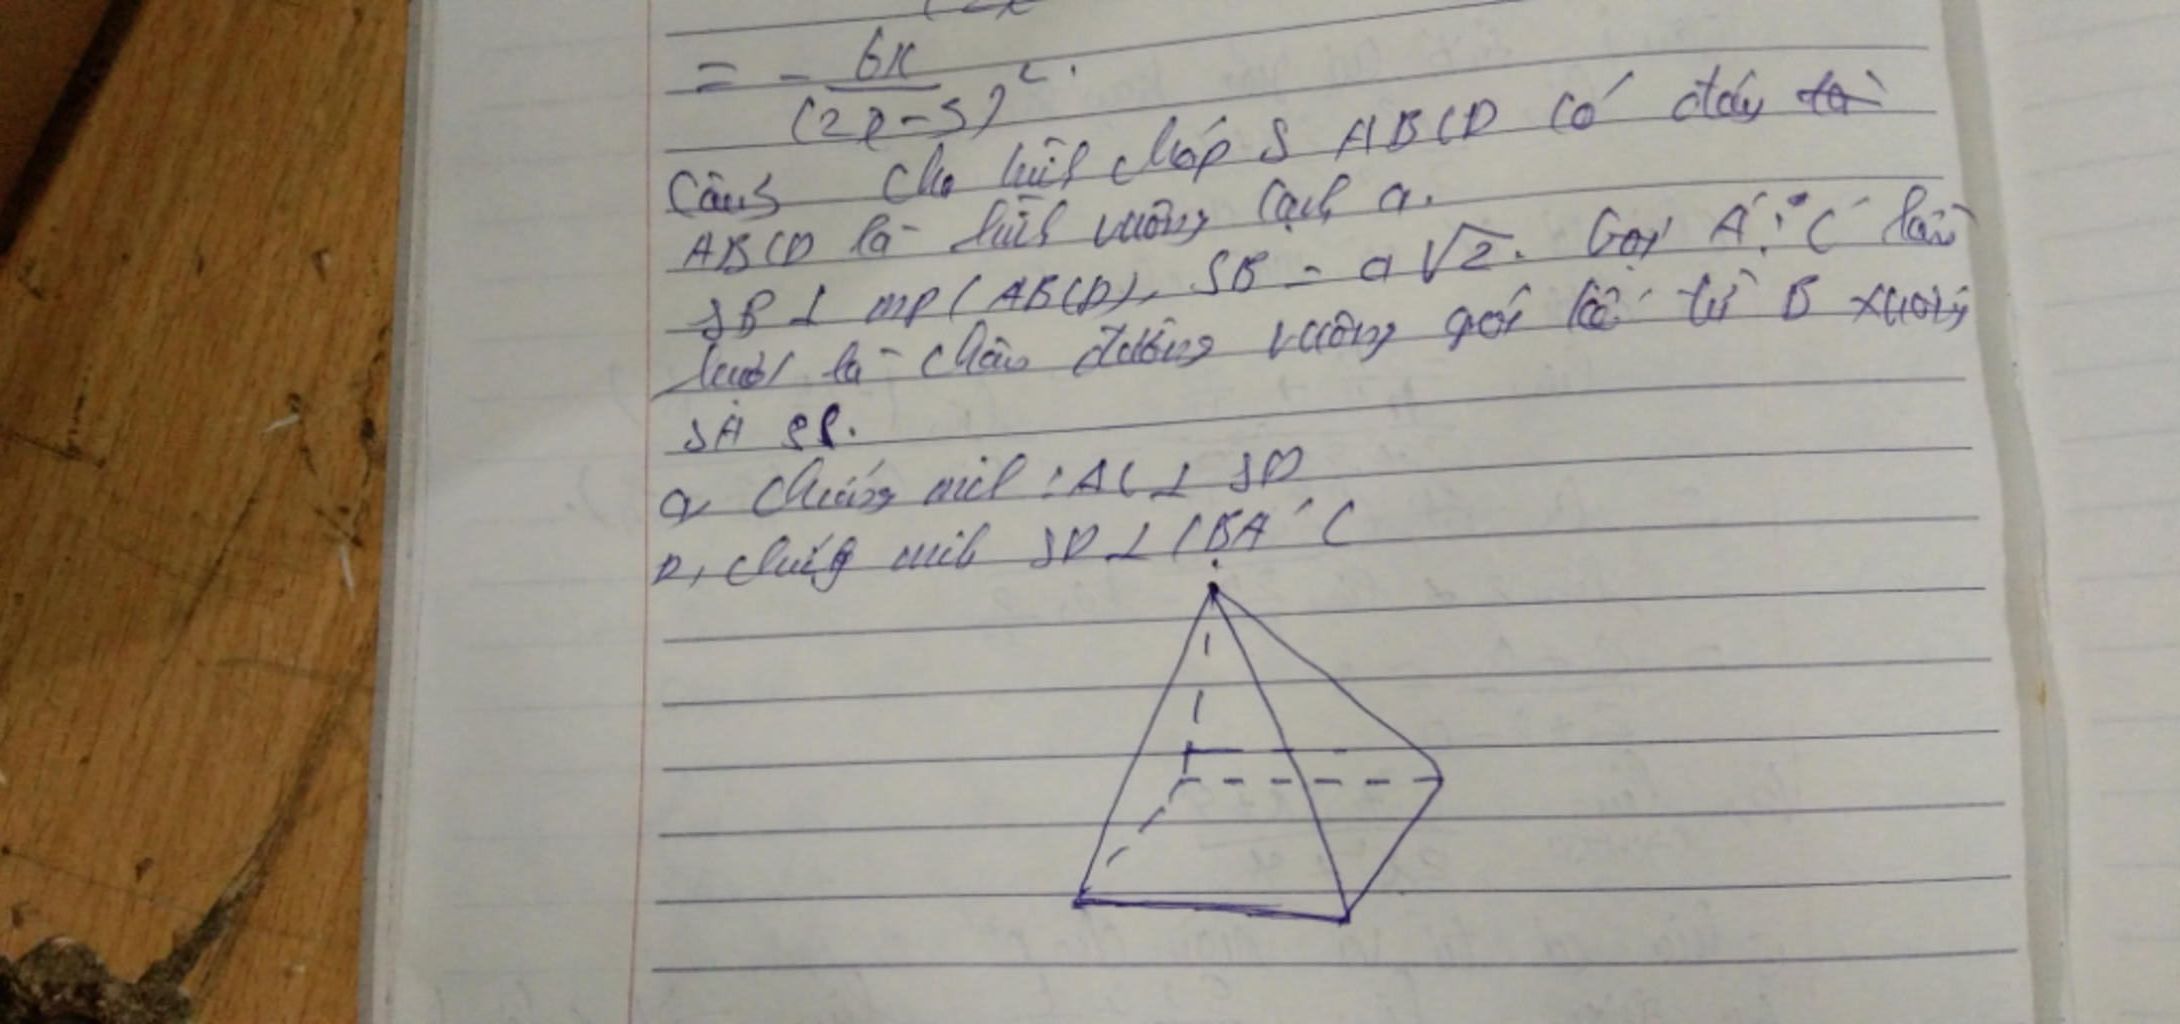 = - 6x
(2x-5)²
Câu5 Cho hình chóp S ABCD có đáy là
ABCD là hình vuông cạnh a.
SB ⊥ mp(ABCD), SB = a√2. Gọi A', C' lần
lượt là chân đường vuông góc kẻ từ B xuống
SA
a, Chứng minh : AC ⊥ SD
b, chứng minh SD ⊥ (BA'C